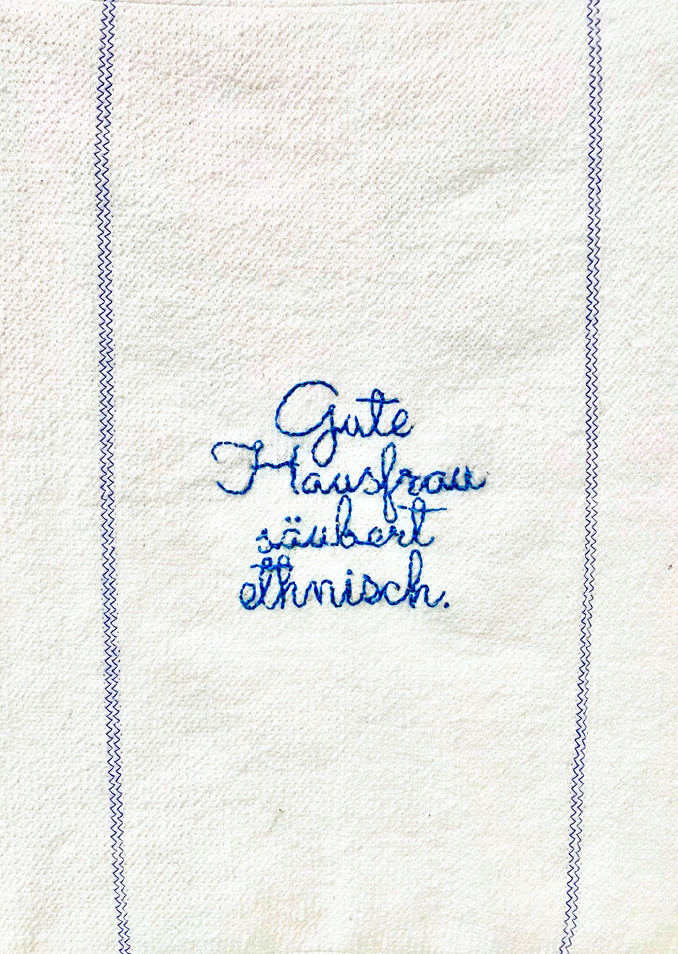 Gute
Hausfrau
säubert
ethnisch.